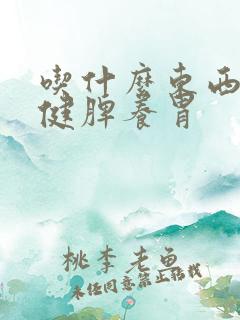 喫什麼東西
健脾養胃
桃李老魚
未經同意禁止轉載